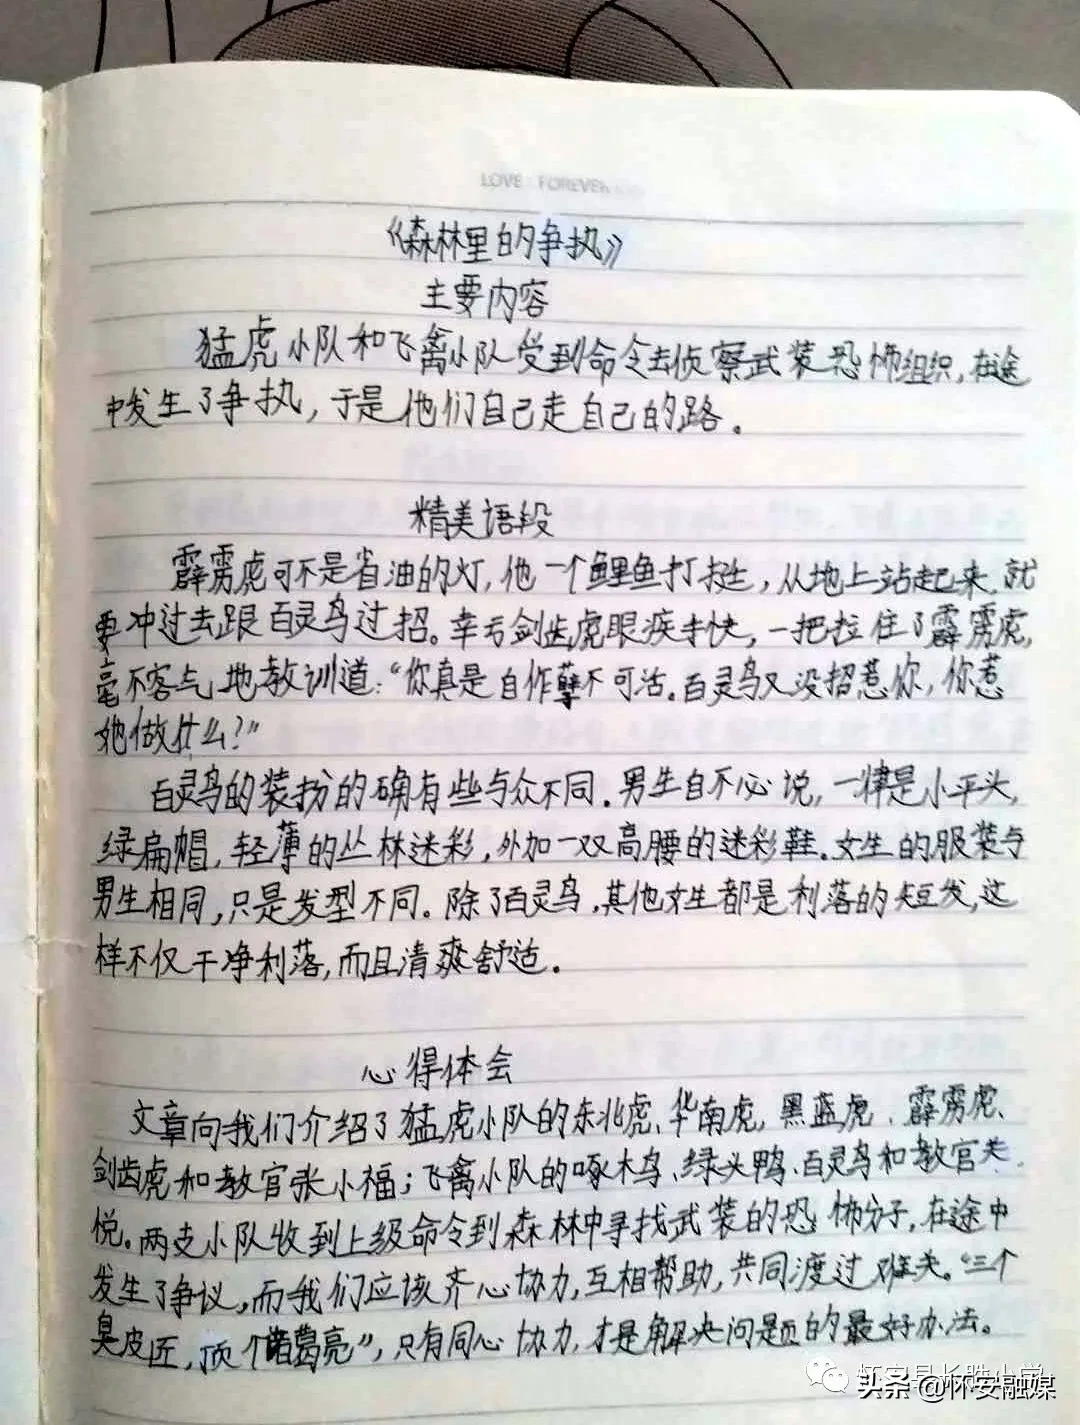 LOVE FOREVER
《森林里的争执》
主要内容
猛虎小队和飞禽小队受到命令去侦察武装恐怖组织,在途
中发生了争执,于是他们自己走自己的路。
精美语段
霹雳虎可不是省油的灯,他一个鲤鱼打挺,从地上站起来,就
要冲过去跟百灵鸟过招。幸亏剑齿虎眼疾手快,一把拉住了霹雳虎,
毫不客气地教训道:“你真是自作孽不可活。百灵鸟又没招惹你,你惹
她做什么?”
百灵鸟的装扮的确有些与众不同。男生自不必说,一律是小平头,
绿扁帽,轻薄的丛林迷彩,外加一双高腰的迷彩鞋。女生的服装与
男生相同,只是发型不同。除了百灵鸟,其他女生都是利落的短发,这
样不仅干净利落,而且清爽舒适。
心得体会
文章向我们介绍了猛虎小队的东北虎、华南虎,黑蓝虎、霹雳虎、
剑齿虎和教官张小福;飞禽小队的啄木鸟、绿头鸭、百灵鸟和教官关
悦。两支小队收到上级命令到森林中寻找武装的恐怖分子,在途中
发生了争议,而我们应该齐心协力,互相帮助,共同渡过难关。“三个
臭皮匠,顶个诸葛亮”,只有同心协力,才是解决问题的最好办法。
怀安县长胜小学
头条 @怀安融媒